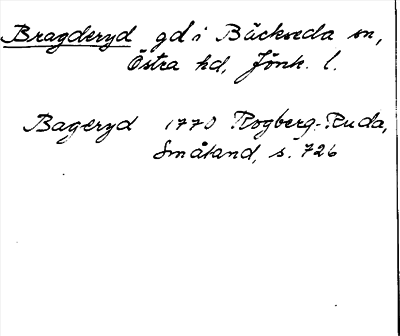 Bragderyd gd i Bäckseda sn,
Östra hd, Jönk. l.
Bageryd 1770 Rogberg-Ruda,
Småland, s. 726